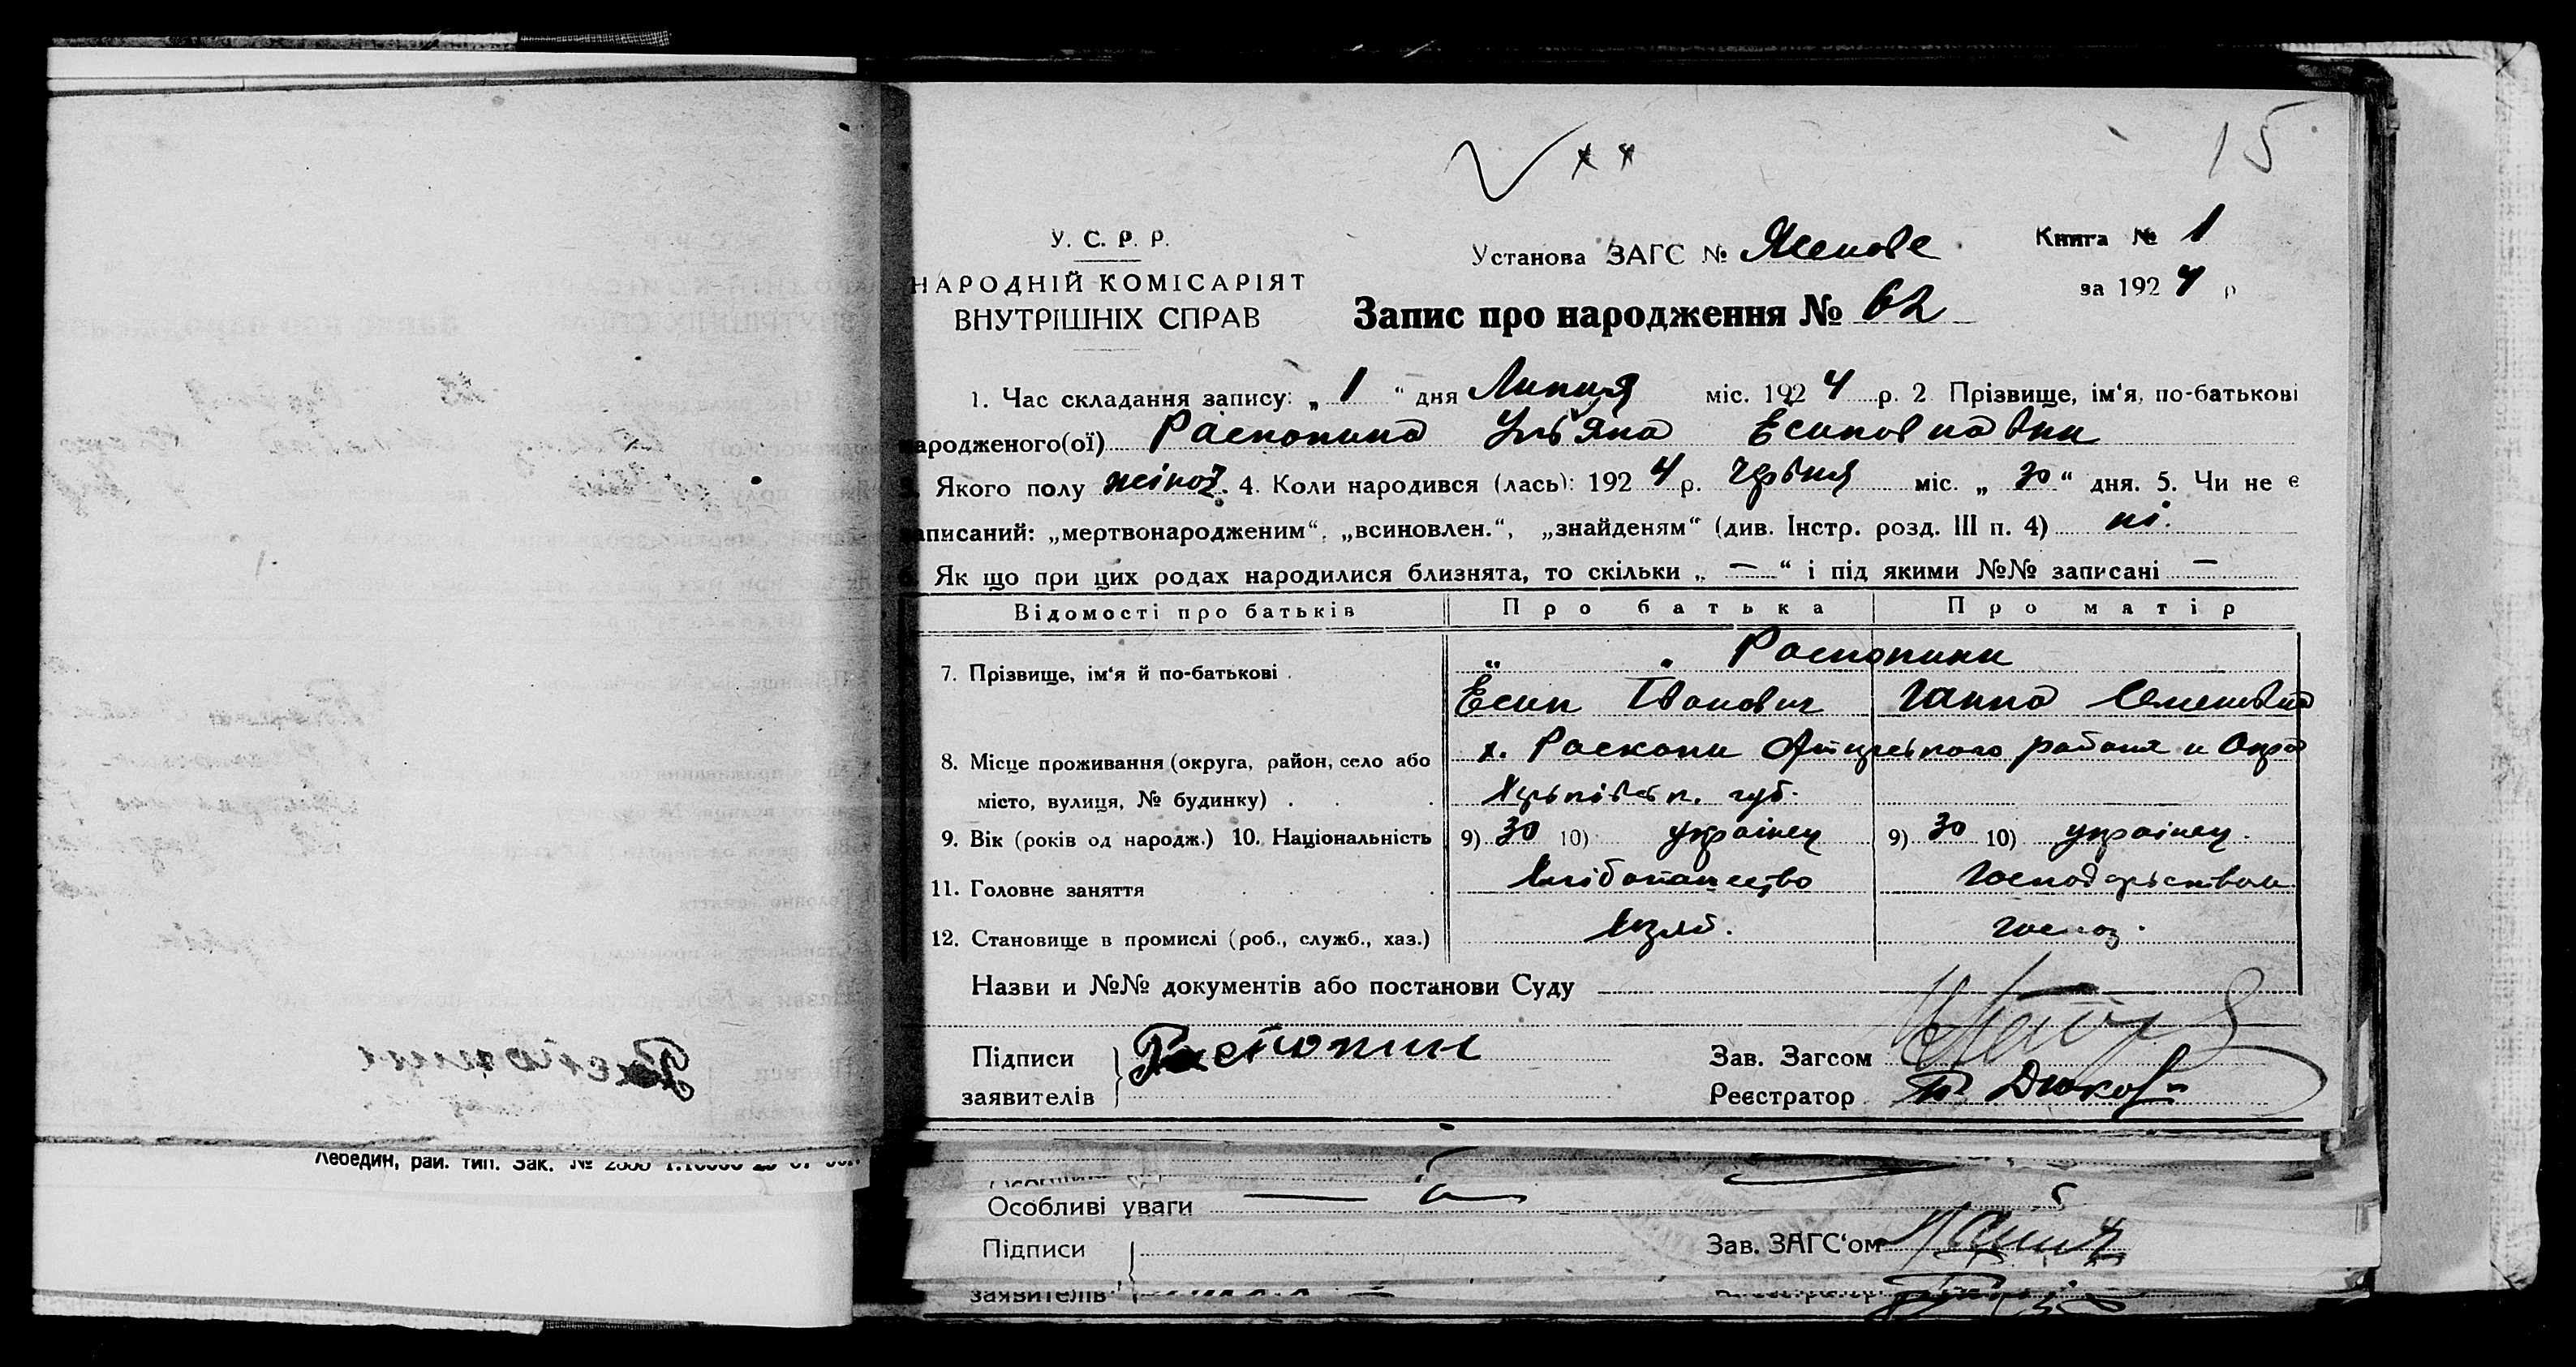 15
У. С. Р. Р.
НАРОДНІЙ КОМІСАРІЯТ
ВНУТРІШНІХ СПРАВ
Установа ЗАГС № Ясенове
Книга № 1
за 1924 р
Запис про народження № 62
1. Час складання запису: „ 1 “ дня Липця міс. 1924 р. 2 Прізвище, ім‘я, по-батькові
народженого(ої) Распопина Улʼяна Есиповна
Якого полу жіноч. 4. Коли народився (лась): 1924 р. Червня міс. „ 30 “ дня. 5. Чи не є
аписаний: „мертвонародженим“, „всиновлен.“, „знайденям“ (див. Інстр. розд. III п. 4) ні.
Як що при цих родах народилися близнята, то скільки „ — “ і під якими №№ записані —
Відомості про батьків Про батька Про матір
7. Прізвище, ім‘я й по-батькові „ „ Распопини
Есип Іванович Ганна Семеновна
8. Місце проживання (округа, район, село або х.
місто, вулиця, № будинку) Харьківськ. губ.
9. Вік (років од народж.) 10. Національність 9) 30 10) українец 9) 30 10) українец.
11. Головне заняття Хлібопашество
12. Становище в промислі (роб., служб., хаз.) господ.
Назви и №№ документів або постанови Суду
Підписи Распопин Зав. Загсом
заявителів Реєстратор Дюков
Лебедин, рай. тип. Зак. №
Особливі уваги
Підписи Зав. ЗАГС‘ом
заявителів